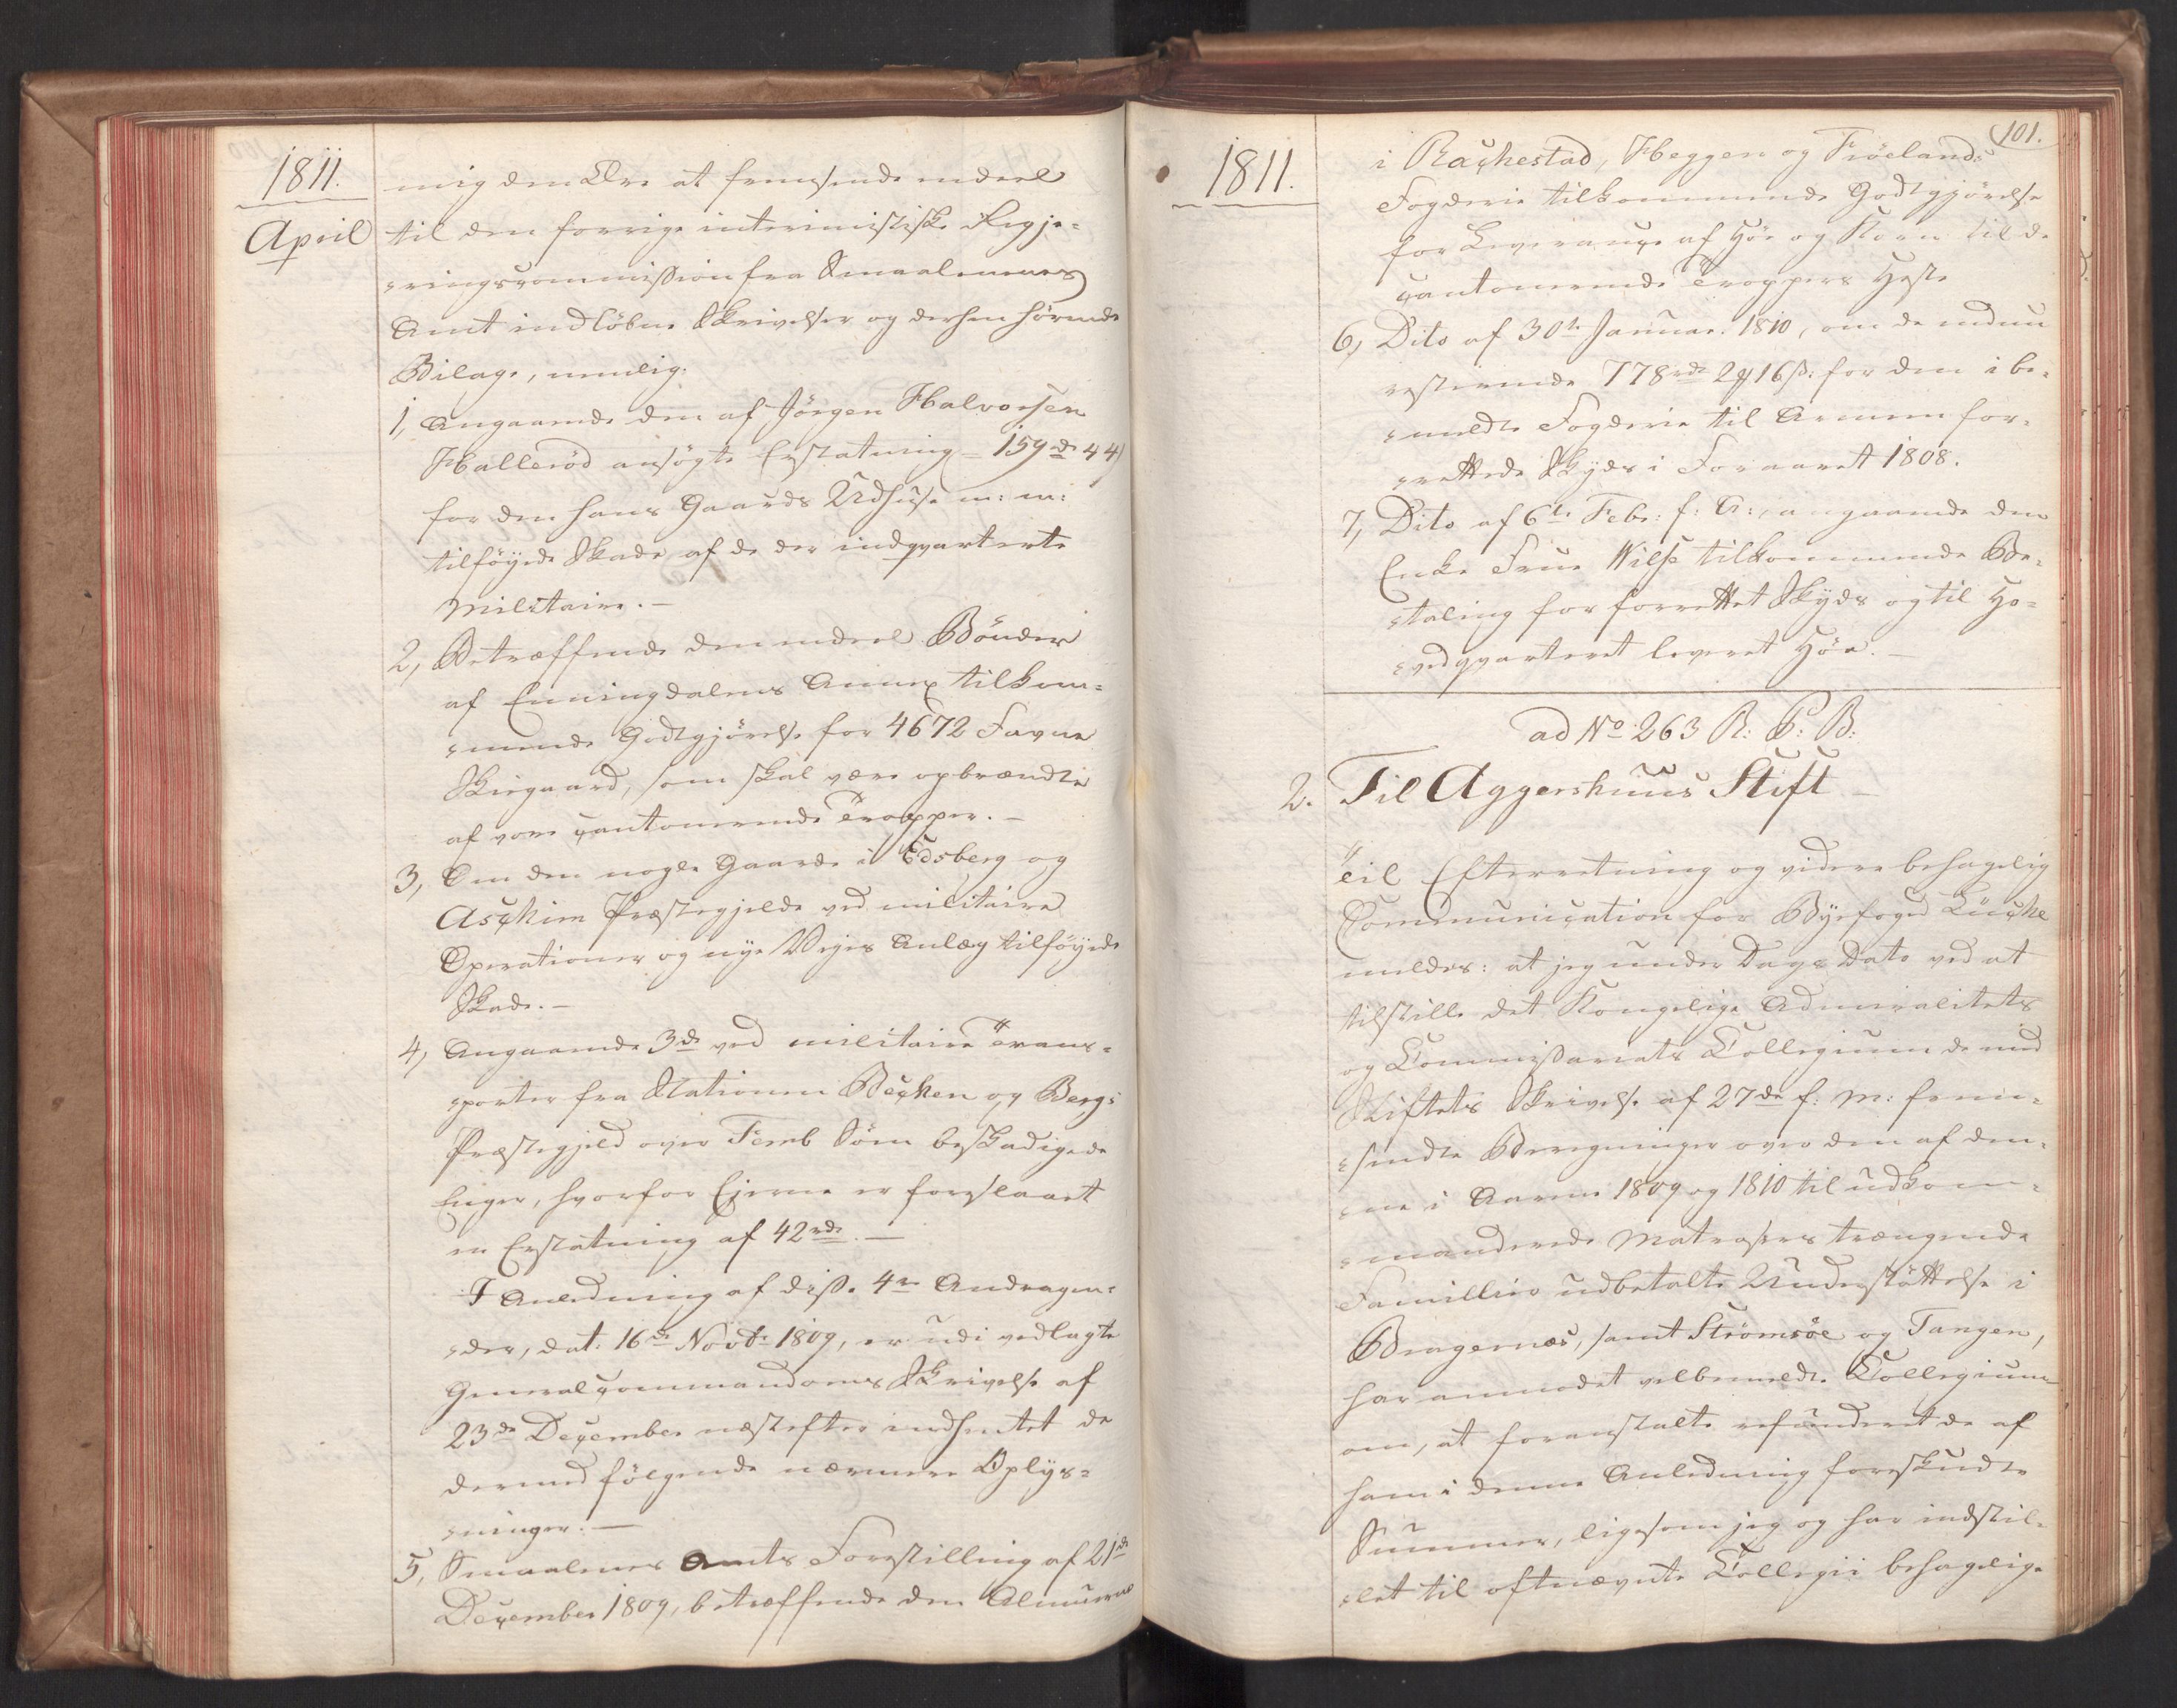 1811.
April
mig den Ære at fremsende endeel
til den forrige interimistiske Regje-
ringscommission fra Smaalenenes
Amt indløbne Skrivelser og derhen hørende
Bilage, nemlig:
1, Angaaende den af Jørgen Halvorsen
Hallerød ansøgte Erstatning = 159 rd 44
for den hans Gaards Udhuse m: m:
tilføyede Skade af de der indqvarterte
Militaire. —
2, Betræffende den endeel Bønder
af Enningdalens Annex tilkom-
mende Godtgjørelse for 4672 Favne
Skigaard, som skal være opbrændte
af vore cantonerende Tropper. —
3, Om den nogle Gaarde i Edsberg og
Aschim Præstegjelde ved militaire
Operationer og nye Vejes Anlæg tilføyede
Skade. —
4, Angaaende 3de ved militaire Trans-
porter fra Stationen Bechen og Bergs
Præstegjeld over Femb Søm beskadigede
Enger, hvorfor Ejerne er foreslaaet
en Erstatning af 42 rdr. —
I Anledning af disse 4re Andragen-
der, dat: 16de Novbr 1809, er udi vedlagte
Generalcommandoens Skrivelse af
23de December næstefter indhentet de
dermed følgende nærmere Oplys-
ninger. —
5, Smaalenenes Amts Forestilling af 21de
December 1809, betræffende den Almuerne
1811.
101.
i Rachestad, Heggen og Frøelands
Fogderie tilkommende Godtgjørelse
for Leverance af Høe og Korn til de
cantonerende Troppers Heste
6, Dito af 30te Januar. 1810, om de endnu
resterende 778 rdr 2 16 s: for den i be-
meldte Fogderie til Armeen for-
rettede Skyds i Foraaret 1808.
7, Dito af 6te Febr: f: A:, angaaende den
Enke Frue Wilse tilkommende Be-
taling for forrettet Skyds og til Ho-
vedqvarteret leveret Høe. —
ad No 263 R: P: B:
2. Til Aggershuus Stift —
Til Efterretning og videre behagelig
Communication for Byefoged Lüche
meldes: at jeg under Dags Dato ved at
tilstille det Kongelige Admiralitets
og Commissariats Collegium de med
Stiftets Skrivelse af 27de f: M: frem-
sendte Beregninger over den af den-
ne i Aarene 1809 og 1810 til udkom-
manderede Matrosers trængende
Famillier udbetalte Understøttelse i
Bragernæs, samt Strømsøe og Tangen,
har anmodet velbemeldte Collegium
om, at foranstalte refunderet de af
ham i denne Anledning forskudte
Summer, ligesom jeg og har indstil-
let til oftnævnte Collegii behagelige